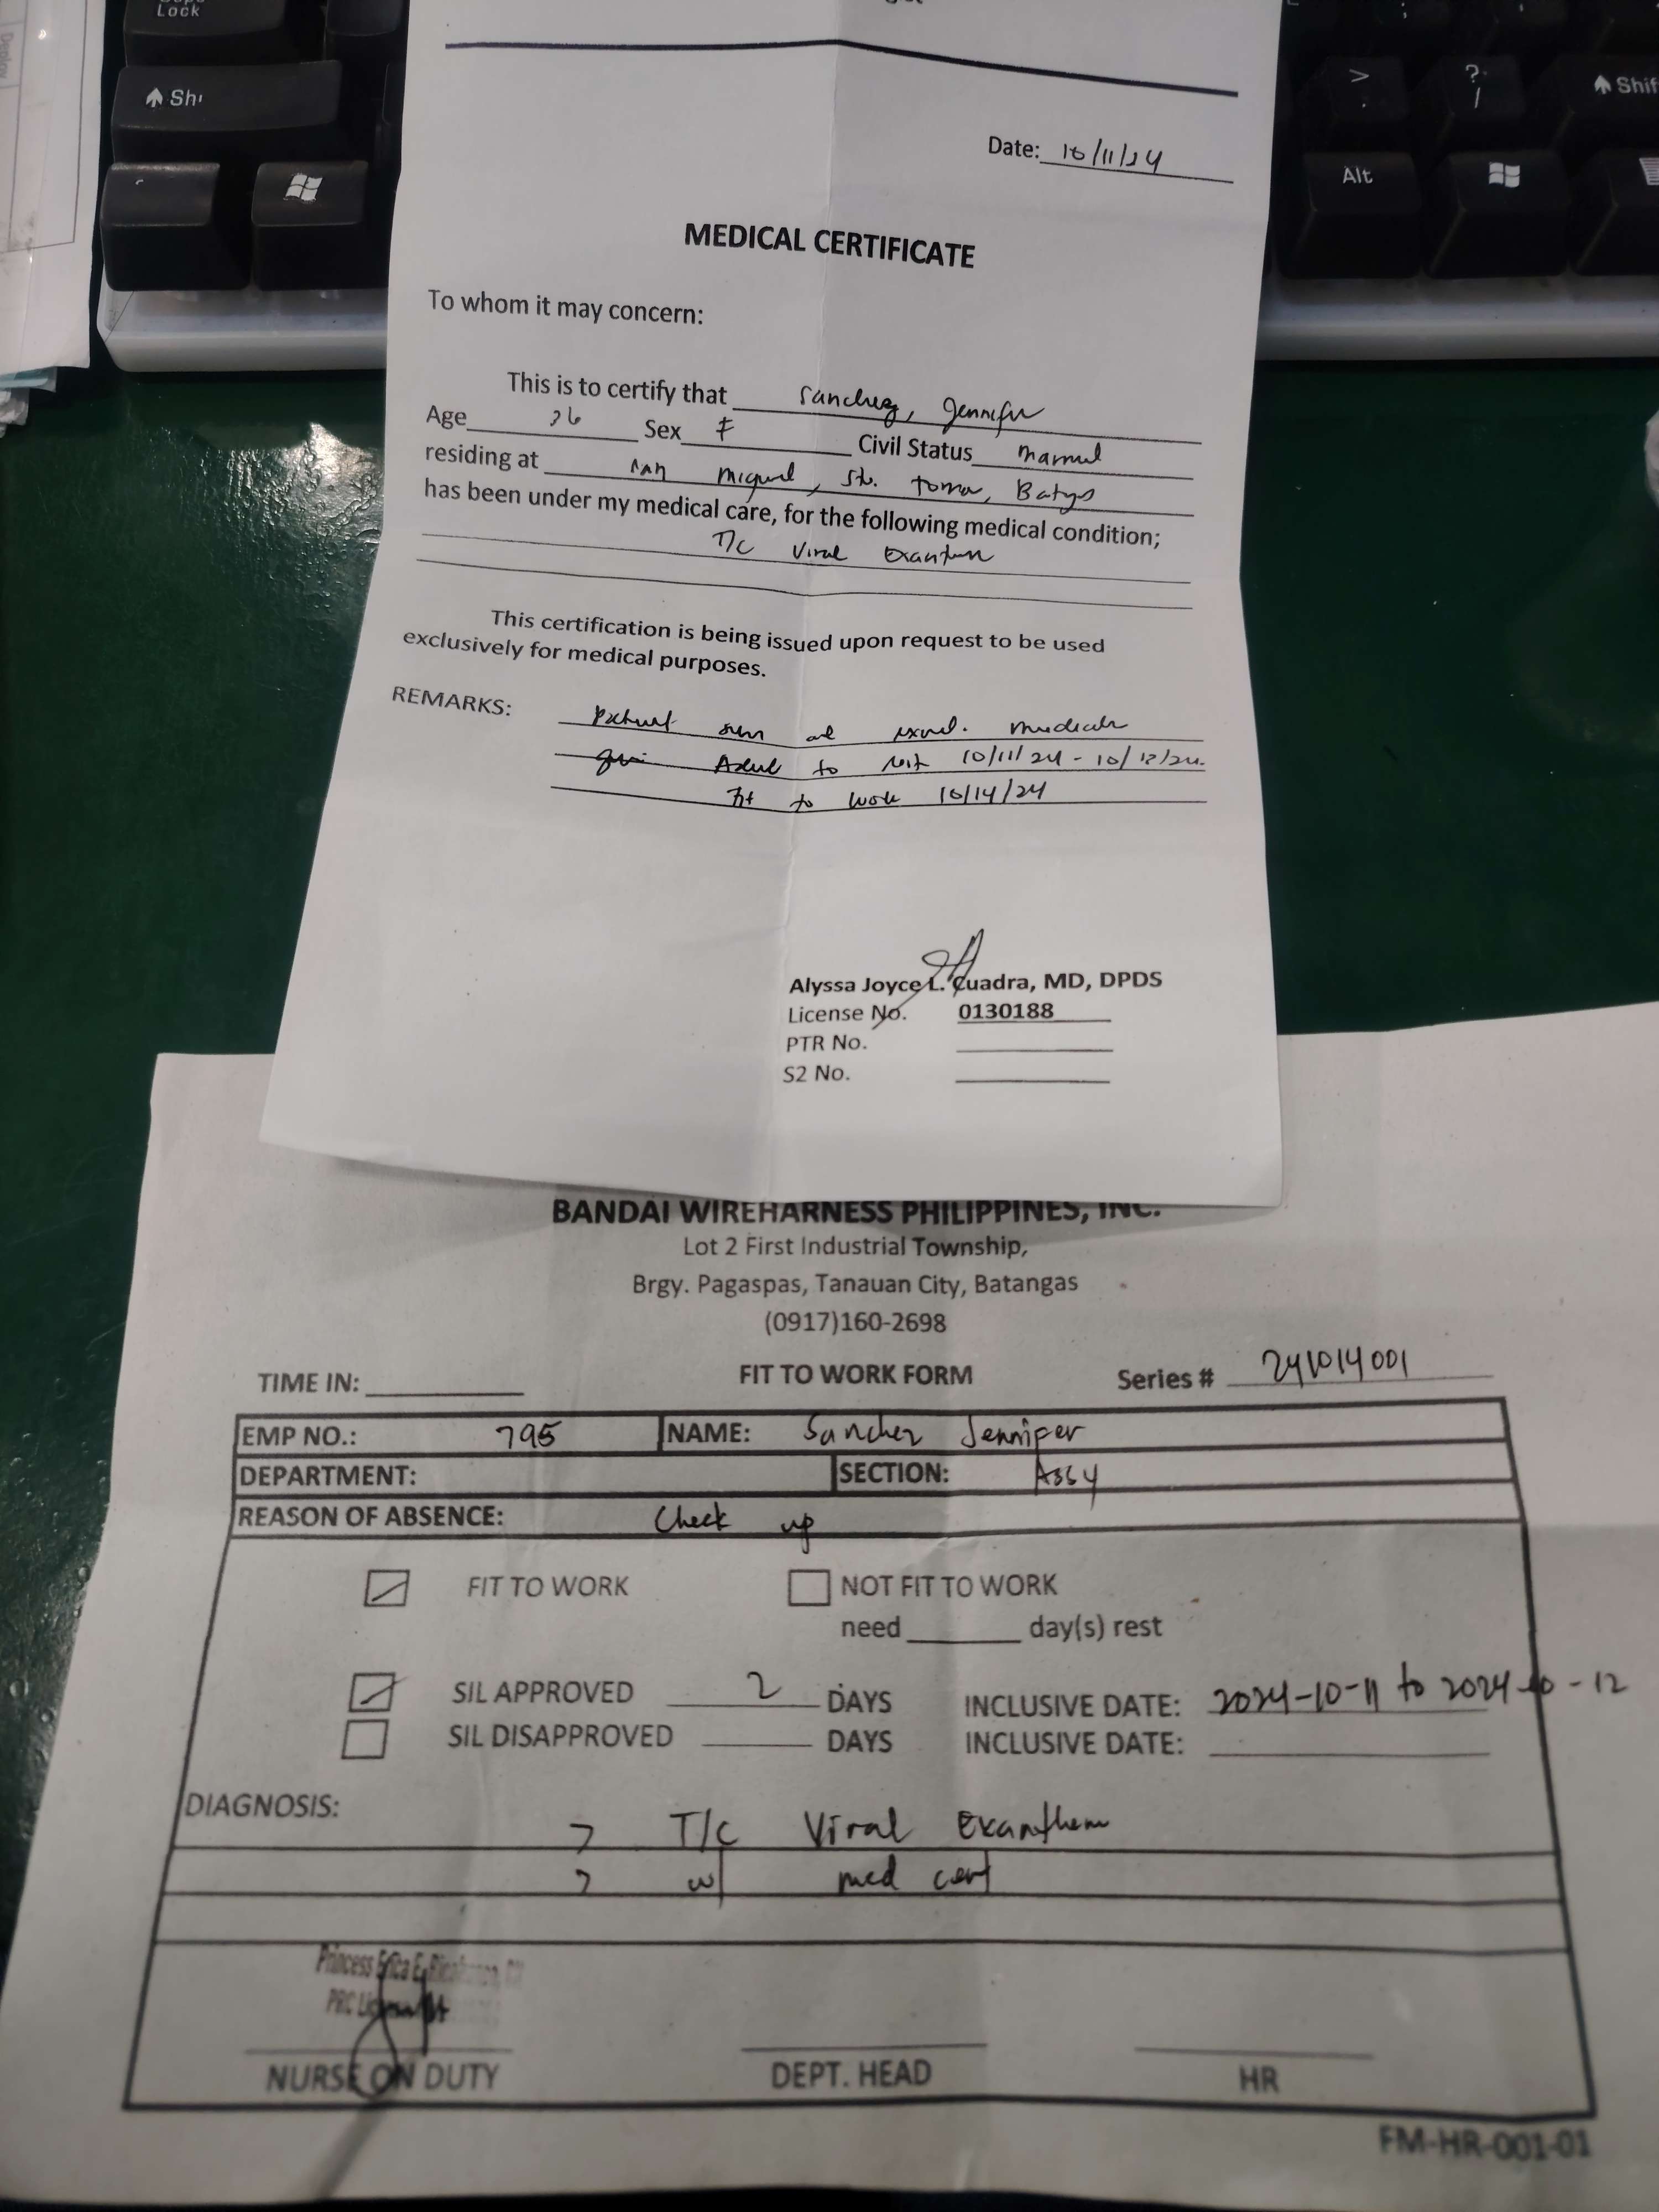 Caps
Lock
Shi
>
.
?
/
Shif
Alt
Deploy
Date: 10/11/24
MEDICAL CERTIFICATE
To whom it may concern:
This is to certify that Sanchez, Jennifer
Age 36 Sex F Civil Status Married
residing at San Miguel, Sto. Tomas, Batgs
has been under my medical care, for the following medical condition;
T/C Viral Exanthem
This certification is being issued upon request to be used
exclusively for medical purposes.
REMARKS: Patient seen and medicals
to rest 10/11/24 - 10/12/24.
Fit to work 10/14/24
Alyssa Joyce L. Cuadra, MD, DPDS
License No. 0130188
PTR No.
S2 No.
BANDAI WIREHARNESS PHILIPPINES, INC.
Lot 2 First Industrial Township,
Brgy. Pagaspas, Tanauan City, Batangas
(0917)160-2698
TIME IN: FIT TO WORK FORM Series # 241014001
EMP NO.: 795 NAME: Sanchez Jennifer
DEPARTMENT: SECTION: Assy
REASON OF ABSENCE: Check up
FIT TO WORK NOT FIT TO WORK
need day(s) rest
SIL APPROVED 2 DAYS INCLUSIVE DATE: 2024-10-11 to 2024-10-12
SIL DISAPPROVED DAYS INCLUSIVE DATE:
DIAGNOSIS:
> T/C Viral Exanthem
> w/ med cert
Princess Erica E.
PRC License
NURSE ON DUTY DEPT. HEAD HR
FM-HR-001-01